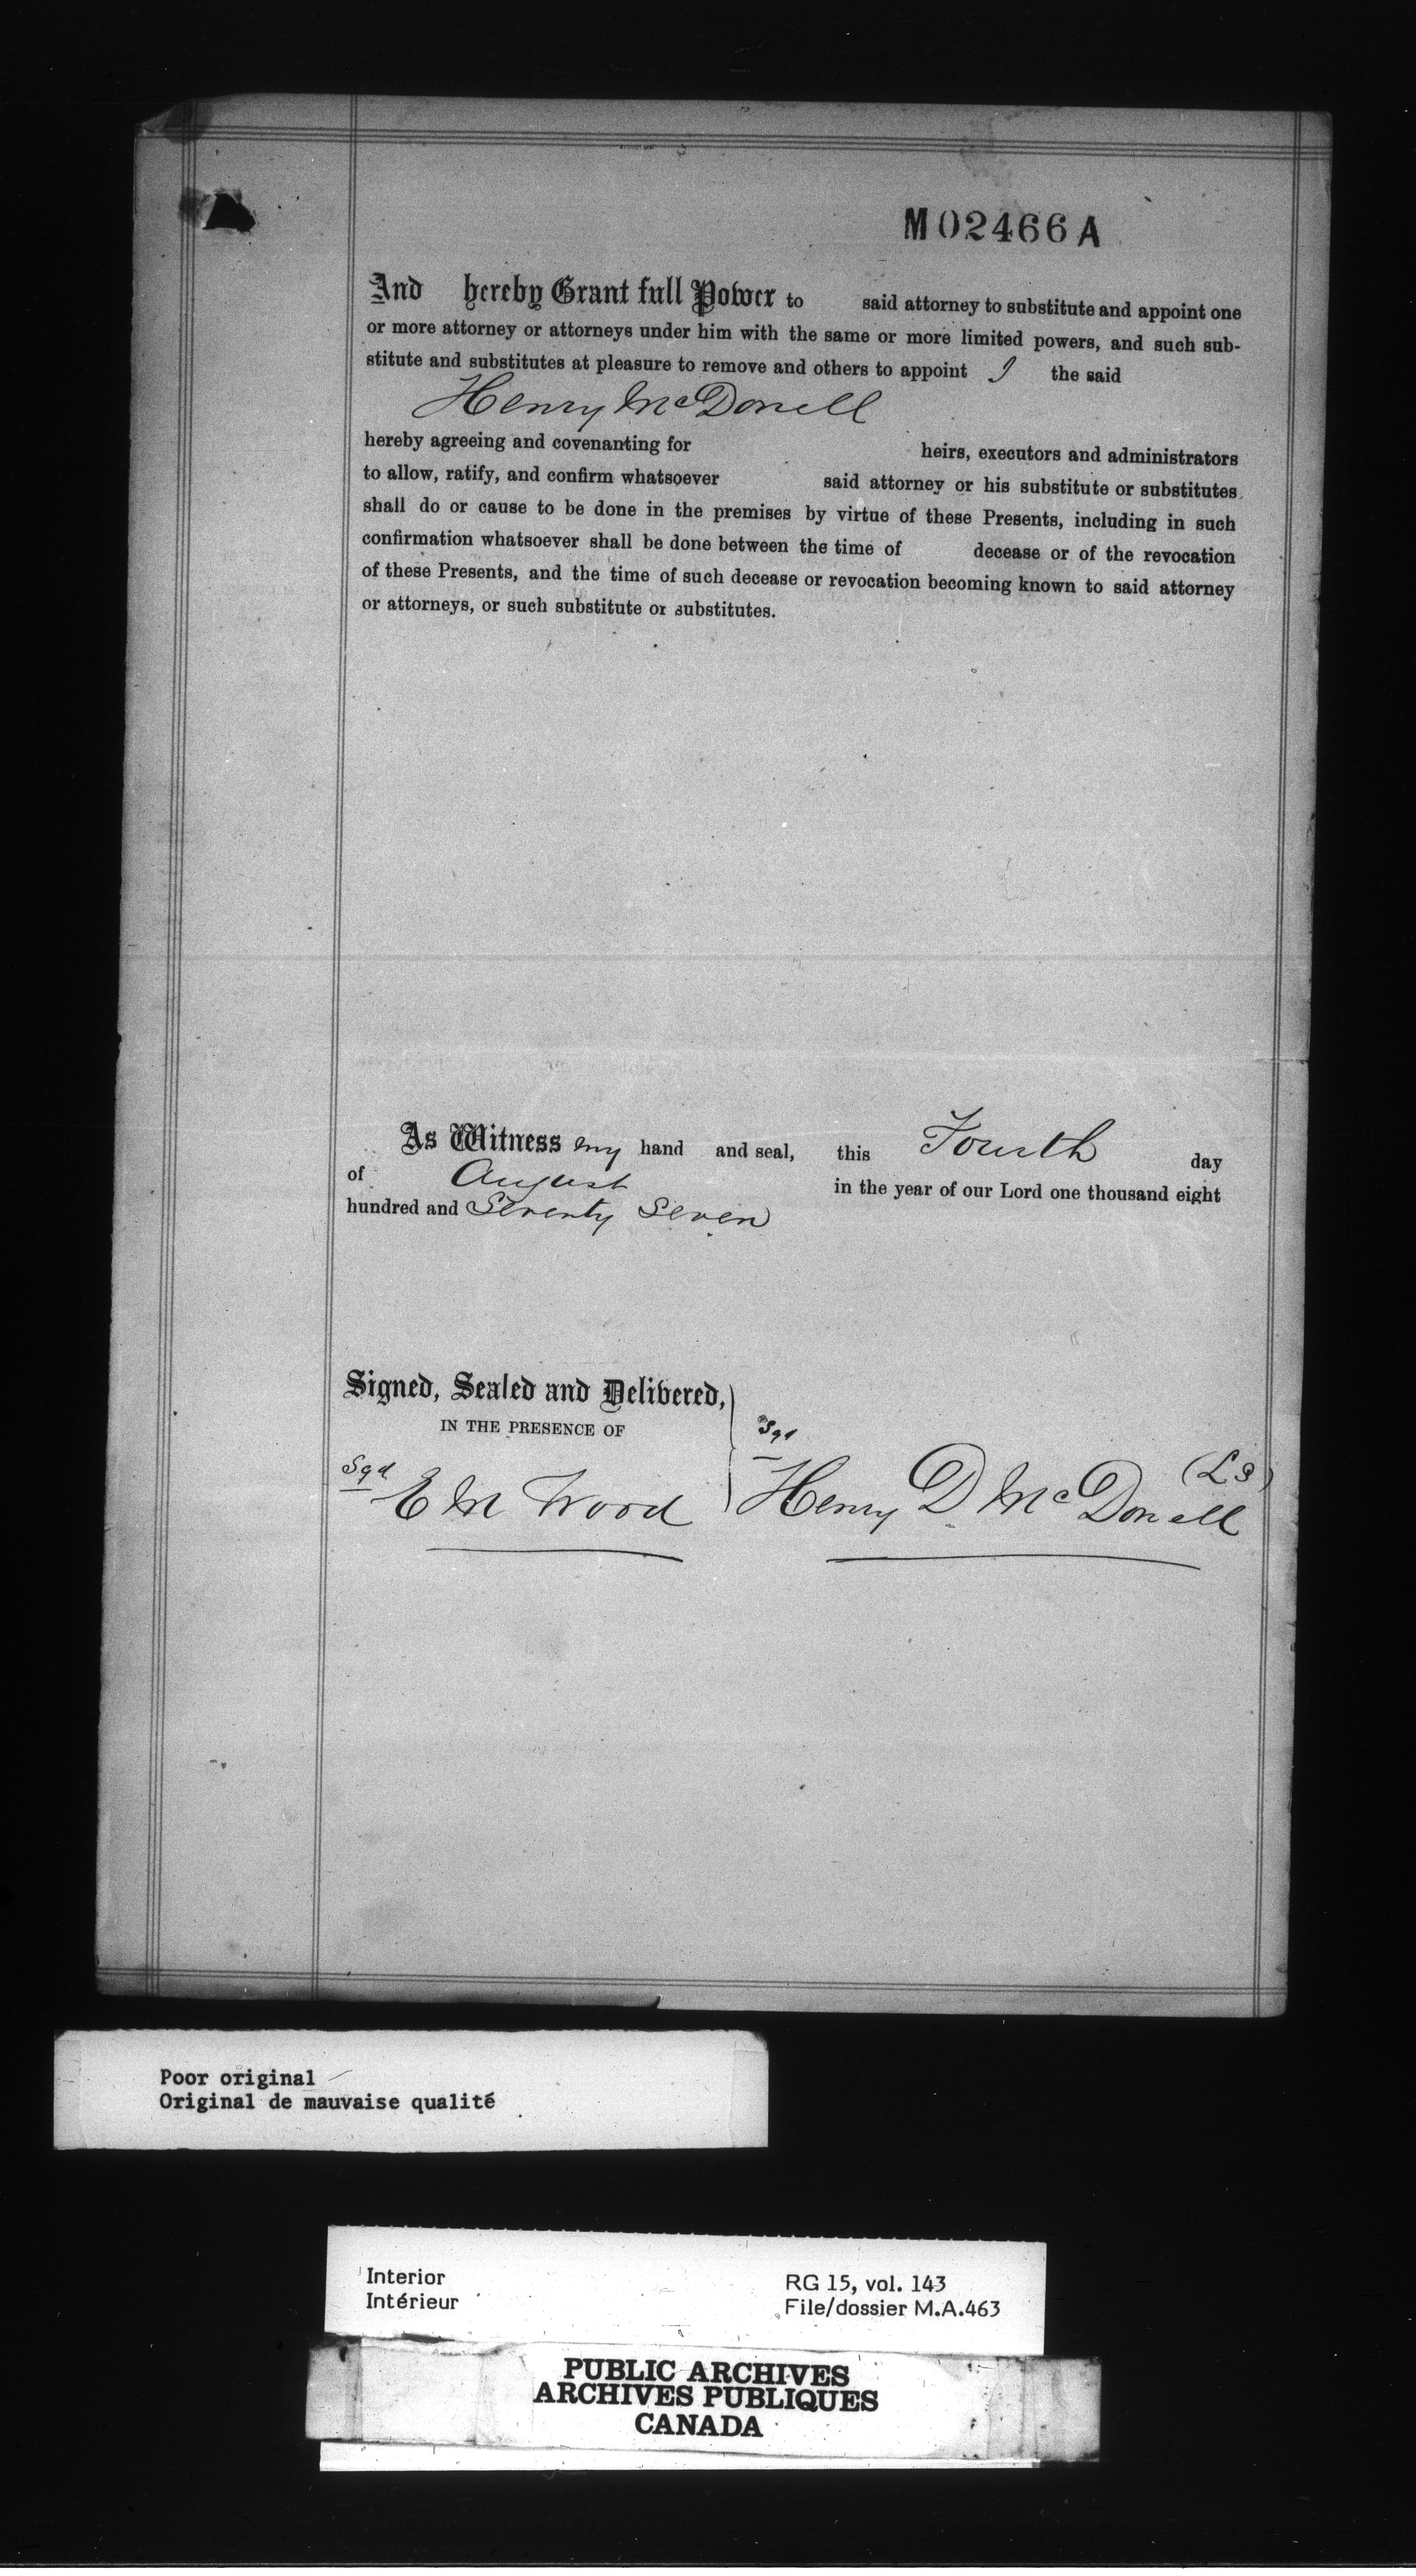 M02466A
And hereby Grant full Power to said attorney to substitute and appoint one
or more attorney or attorneys under him with the same or more limited powers, and such sub-
stitute and substitutes at pleasure to remove and others to appoint I the said
Henry McDonell
hereby agreeing and covenanting for heirs, executors and administrators
to allow, ratify, and confirm whatsoever said attorney or his substitute or substitutes
shall do or cause to be done in the premises by virtue of these Presents, including in such
confirmation whatsoever shall be done between the time of decease or of the revocation
of these Presents, and the time of such decease or revocation becoming known to said attorney
or attorneys, or such substitute or substitutes.
As Witness my hand and seal, this Fourth day
of August in the year of our Lord one thousand eight
hundred and Seventy Seven
Signed, Sealed and Delivered,
IN THE PRESENCE OF
Sgd E M Wood
Sgd Henry D McDonell (LS)
Poor original
Original de mauvaise qualité
Interior
Intérieur
RG 15, vol. 143
File/dossier M.A.463
PUBLIC ARCHIVES
ARCHIVES PUBLIQUES
CANADA